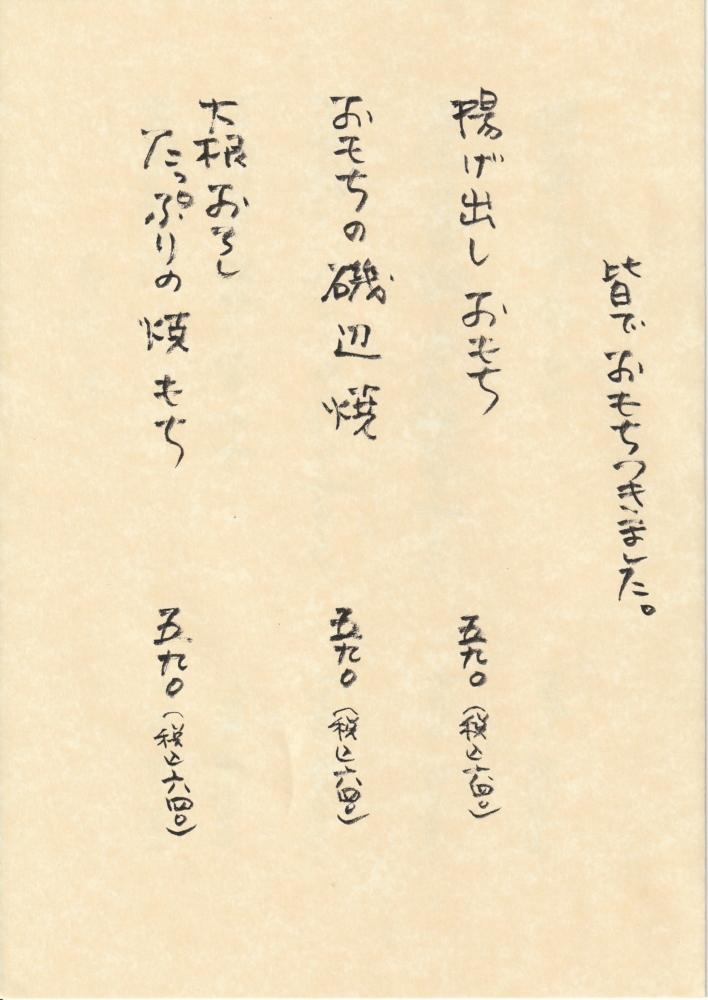 皆でおもちつきました。
揚げ出しおもち
五九〇（税込六四〇）
おもちの磯辺焼
五九〇（税込六四〇）
大根おろし
たっぷりの焼もち
五九〇（税込六四〇）